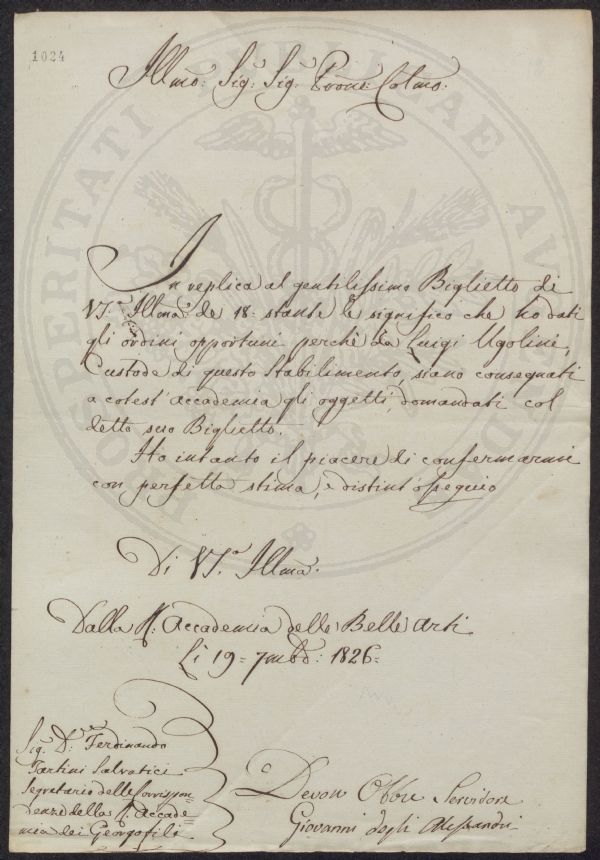 1024
Illmo: Sig: Sig: Prone: Colmo:
In replica al gentilissimo Biglietto di
VS. Illma: de 18: stante le significo che ho dati
gli ordini opportuni perchè da Luigi Ugolini,
Custode di questo Stabilimento, siano consegnati
a cotest' accademia gli oggetti domandati col
detto suo Biglietto.
Ho intanto il piacere di confermarmi
con perfetta stima, e distint' ossequio
Di VS.a Illma:
Dalla R: Accademia delle Belle Arti
Li 19= 7mbr: 1826=
Sig: Dr: Ferdinando
Tartini Salvatici
Segretario delle Corrispon=
denze della R. Accade=
mia dei Georgofili
Devon Obbre Servidore
Giovanni degli Alessandri
PROSPERITATI PUBLICAE AUGENDAE